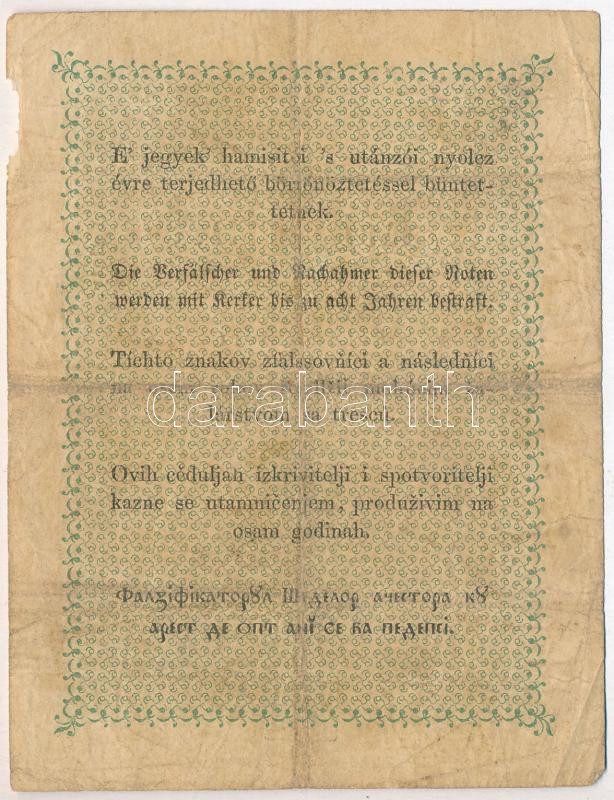 E' jegyek' hamisítói 's utánzói nyolcz
évre terjedhető börtönöztetéssel büntet-
tetnek.
Die Verfälscher und Nachahmer dieser Noten
werden mit Kerker bis zu acht Jahren bestraft.
Tíchto znakov zfalssovňíci a následňíci
na
darabanth
žárstvom sa trescú.
Ovih cěduljah izkrivitelji i spotvoritelji
kazne se utamničenjem, produživim na
osam godinah.
Фалзіфікаторꙋл Шеделор ачестора кꙋ
арест де опт анї се ва педепсі.